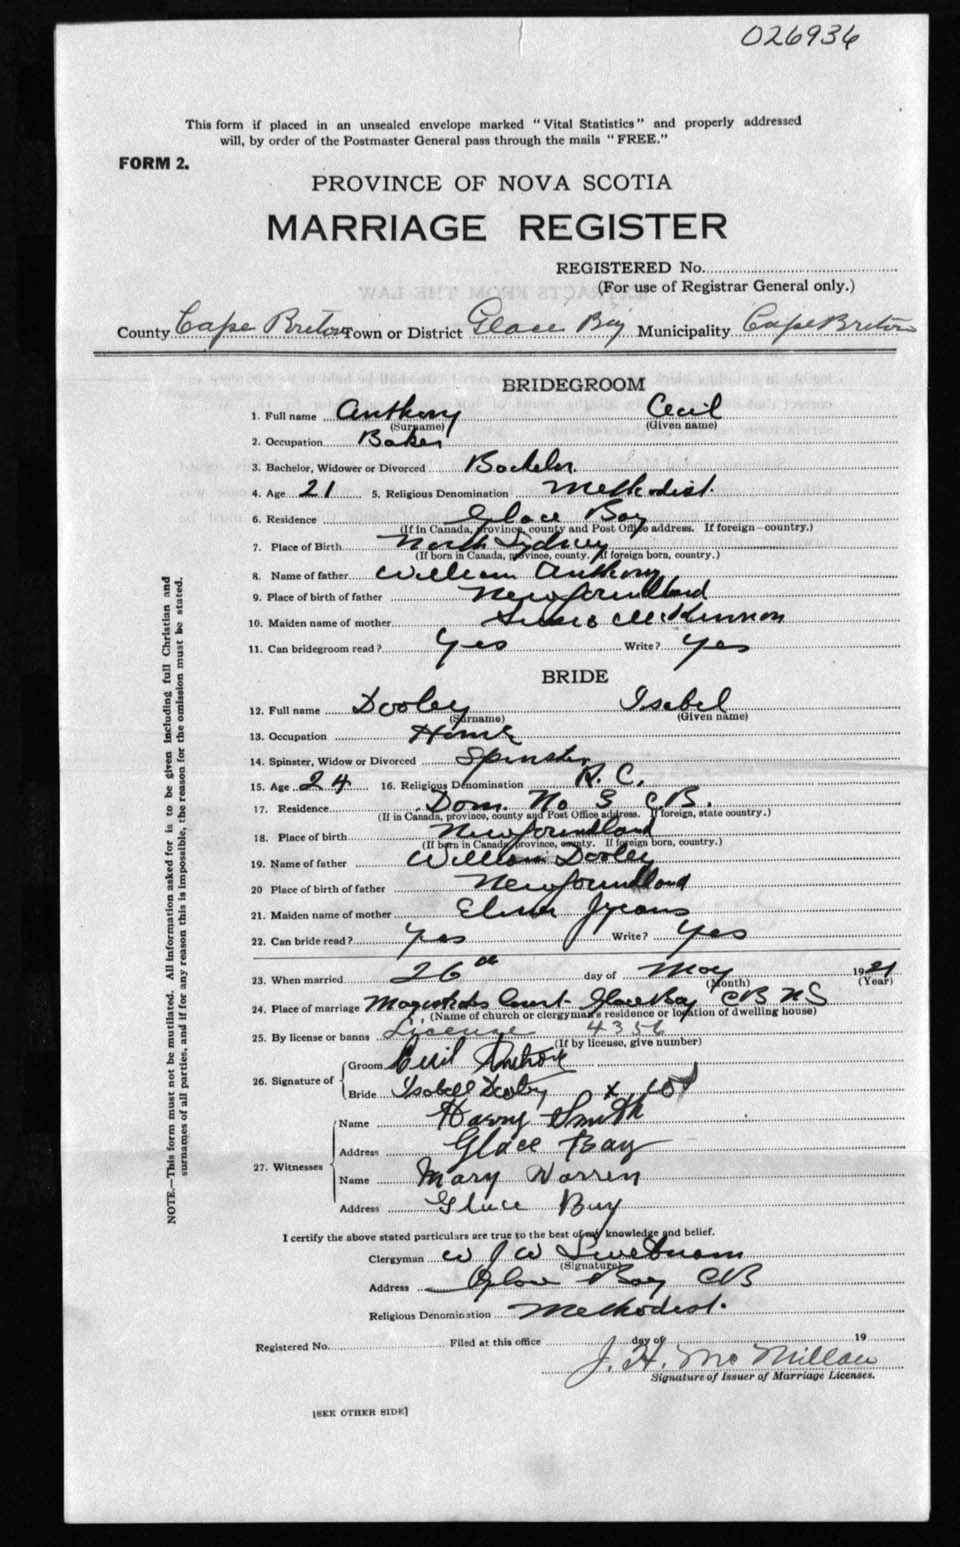 026936
This form if placed in an unsealed envelope marked "Vital Statistics" and properly addressed
will, by order of the Postmaster General pass through the mails "FREE."
FORM 2.
PROVINCE OF NOVA SCOTIA
MARRIAGE REGISTER
REGISTERED No.
(For use of Registrar General only.)
County Cape Breton Town or District Glace Bay Municipality Cape Breton
BRIDEGROOM
1. Full name Anthony Cecil
(Surname) (Given name)
2. Occupation Baker
3. Bachelor, Widower or Divorced Bachelor.
4. Age 21 5. Religious Denomination Methodist.
6. Residence Glace Bay
(If in Canada, province, county and Post Office address. If foreign—country.)
7. Place of Birth North Sydney
(If born in Canada, province, county. If foreign born, country.)
8. Name of father William Anthony
9. Place of birth of father Newfoundland
10. Maiden name of mother McKinnon
11. Can bridegroom read? Yes Write? Yes
BRIDE
12. Full name Dooley Isabel
(Surname) (Given name)
13. Occupation Home
14. Spinster, Widow or Divorced Spinster
15. Age 24 16. Religious Denomination R. C.
17. Residence Dom. No 3 CB.
(If in Canada, province, county and Post Office address. If foreign, state country.)
18. Place of birth Newfoundland
(If born in Canada, province, county. If foreign born, country.)
19. Name of father William Dooley
20 Place of birth of father Newfoundland
21. Maiden name of mother
22. Can bride read? Yes Write? Yes
23. When married 26th day of May 1921
(Month) (Year)
24. Place of marriage Magistrates Court Glace Bay CB NS
(Name of church or clergyman's residence or location of dwelling house)
25. By license or banns License 4356
(If by license, give number)
26. Signature of Groom Cecil Anthony
Bride Isabell Dooley x
27. Witnesses Name Harry Smith
Address Glace Bay
Name Mary Warren
Address Glace Bay
I certify the above stated particulars are true to the best of my knowledge and belief.
Clergyman W J W Swetnam
(Signature)
Address Glace Bay CB
Religious Denomination Methodist.
Registered No. Filed at this office day of 19
J. H. McMillan
Signature of Issuer of Marriage Licenses.
[SEE OTHER SIDE]
NOTE.—This form must not be mutilated. All information asked for is to be given including full Christian and
surnames of all parties, and if for any reason this is impossible, the reason for the omission must be stated.